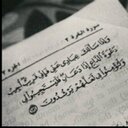 سورة البقرة ٢
الجزء ٢
وإذا سألك عبادي عني فإني قريب أجيب
دعوة الداع إذا دعان فليستجيبوا لي
وليؤمنوا بي لعلهم يرشدون